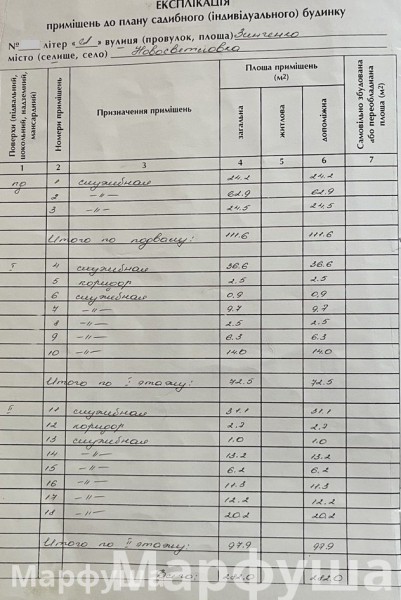 ЕКСПЛІКАЦІЯ
приміщень до плану садибного (індивідуального) будинку
№ літер « » вулиця (провулок, площа) Зинченко
місто (селище, село) Новосветловка
Поверхи (підвальний, цокольний, надземний, мансардний) Номери приміщень Призначення приміщень Площа приміщень (м2) загальна житлова допоміжна Самовільно збудована або переобладнана площа (м2)
1 2 3 4 5 6 7
пд 1 служебная 24.2 24.2
2 —"— 62.9 62.9
3 —"— 24.5 24.5
Итого по подвалу: 111.6 111.6
I 4 служебная 36.6 36.6
5 коридор 2.5 2.5
6 служебная 0.9 0.9
7 —"— 9.7 9.7
8 —"— 2.5 2.5
9 —"— 6.3 6.3
10 —"— 14.0 14.0
Итого по I этажу: 72.5 72.5
II 11 служебная 31.1 31.1
12 коридор 2.7 2.7
13 служебная 1.0 1.0
14 —"— 13.2 13.2
15 —"— 6.2 6.2
16 —"— 11.3 11.3
17 —"— 12.2 12.2
18 —"— 20.2 20.2
Итого по II этажу: 97.9 97.9
Марфуша